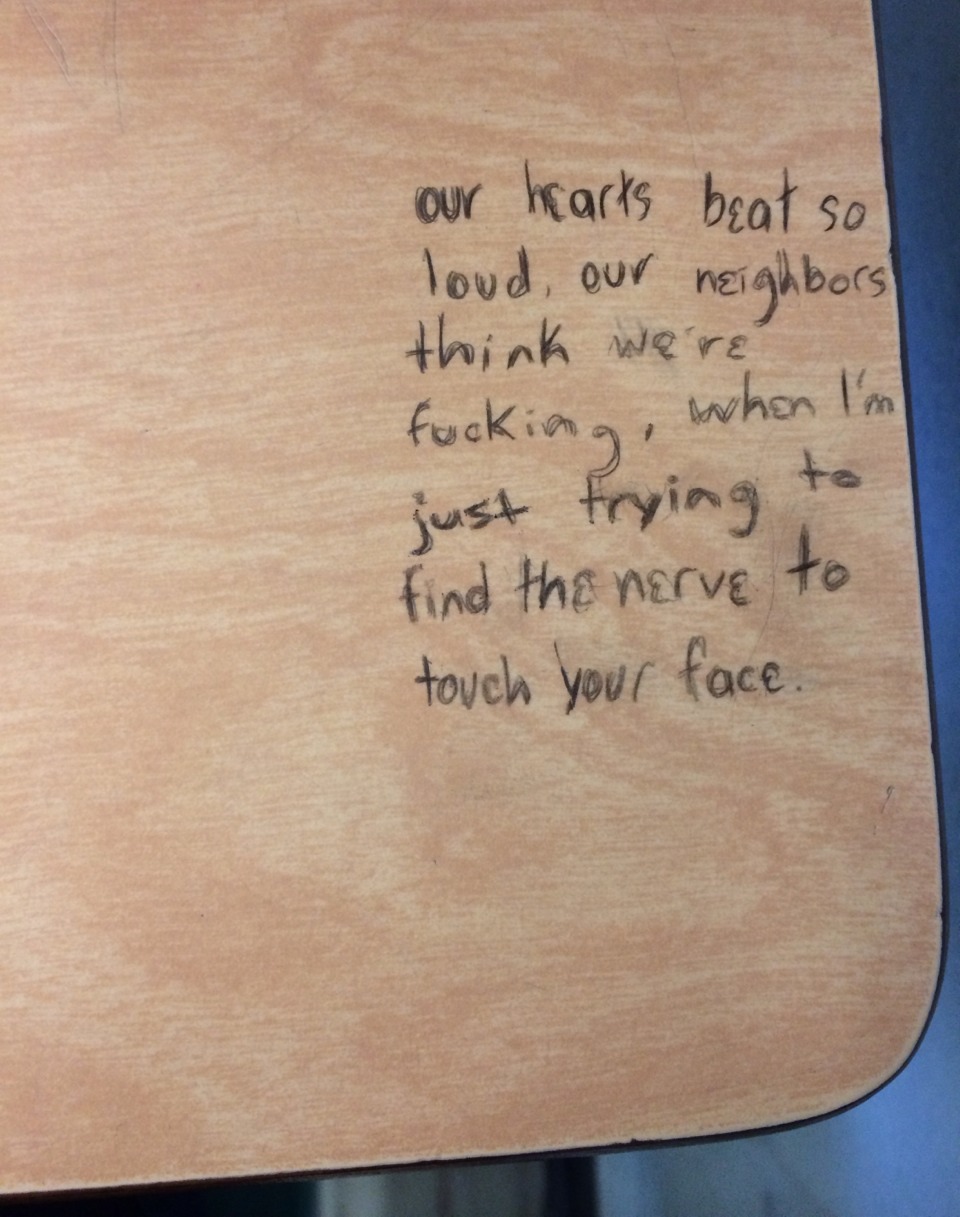 our hearts beat so
loud, our neighbors
think we're
fucking, when I'm
just trying to
find the nerve to
touch your face.